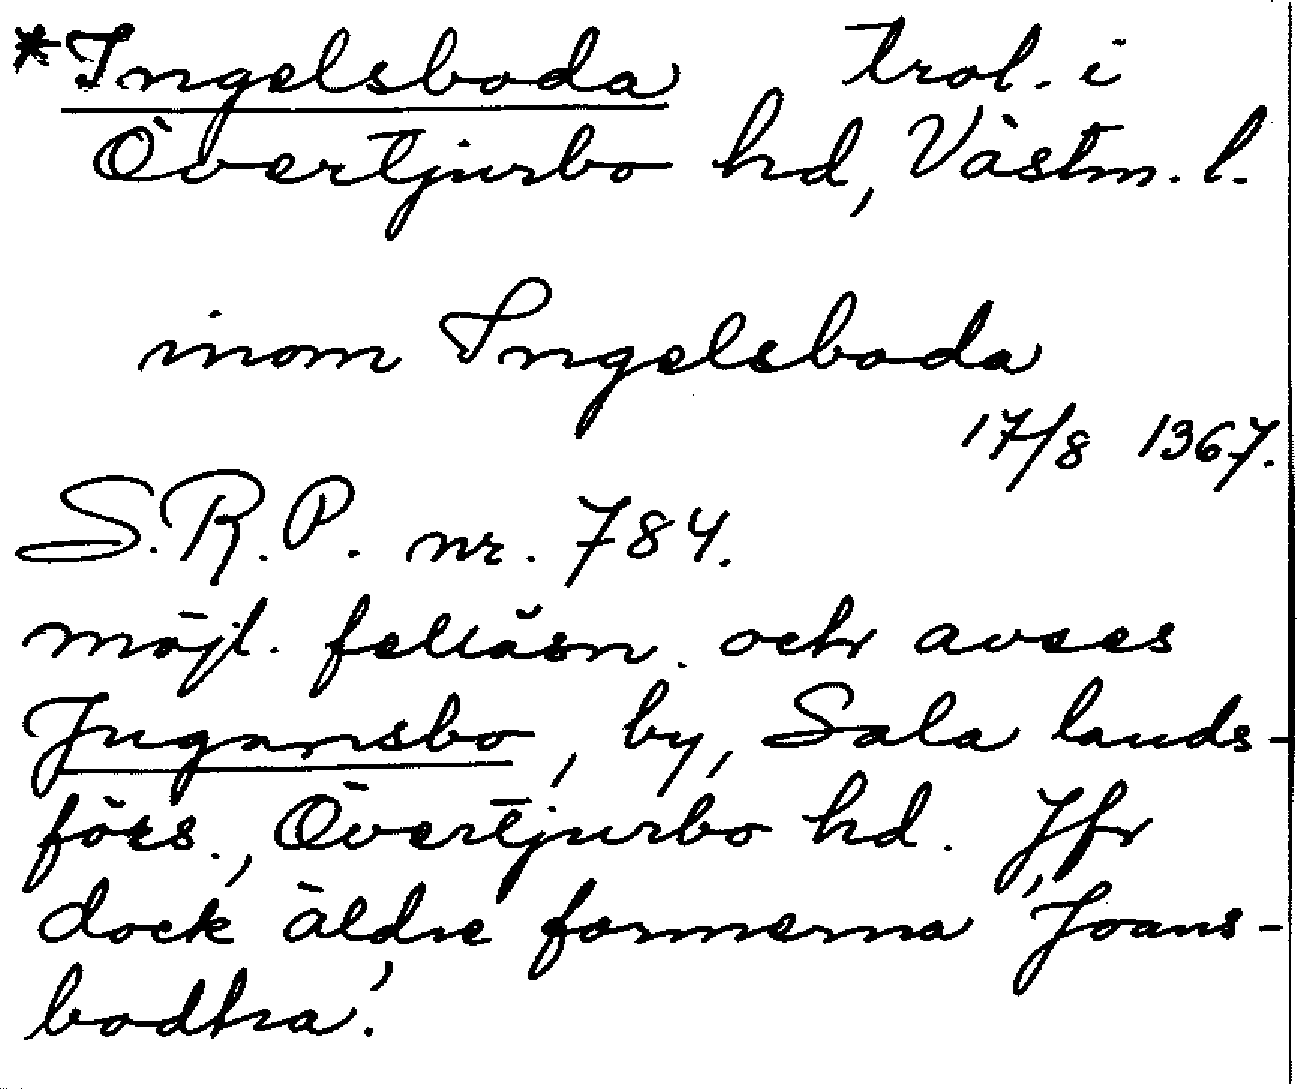 *Ingelsboda trol. i
Övertjurbo hd, Västm. l.
inom Ingelsboda
17/8 1367.
S.R.P. nr. 784.
möjl. felläsn. och avses
Jugansbo, by, Sala lands-
förs., Övertjurbo hd. Jfr
dock äldre formerna 'Joans-
bodha'.